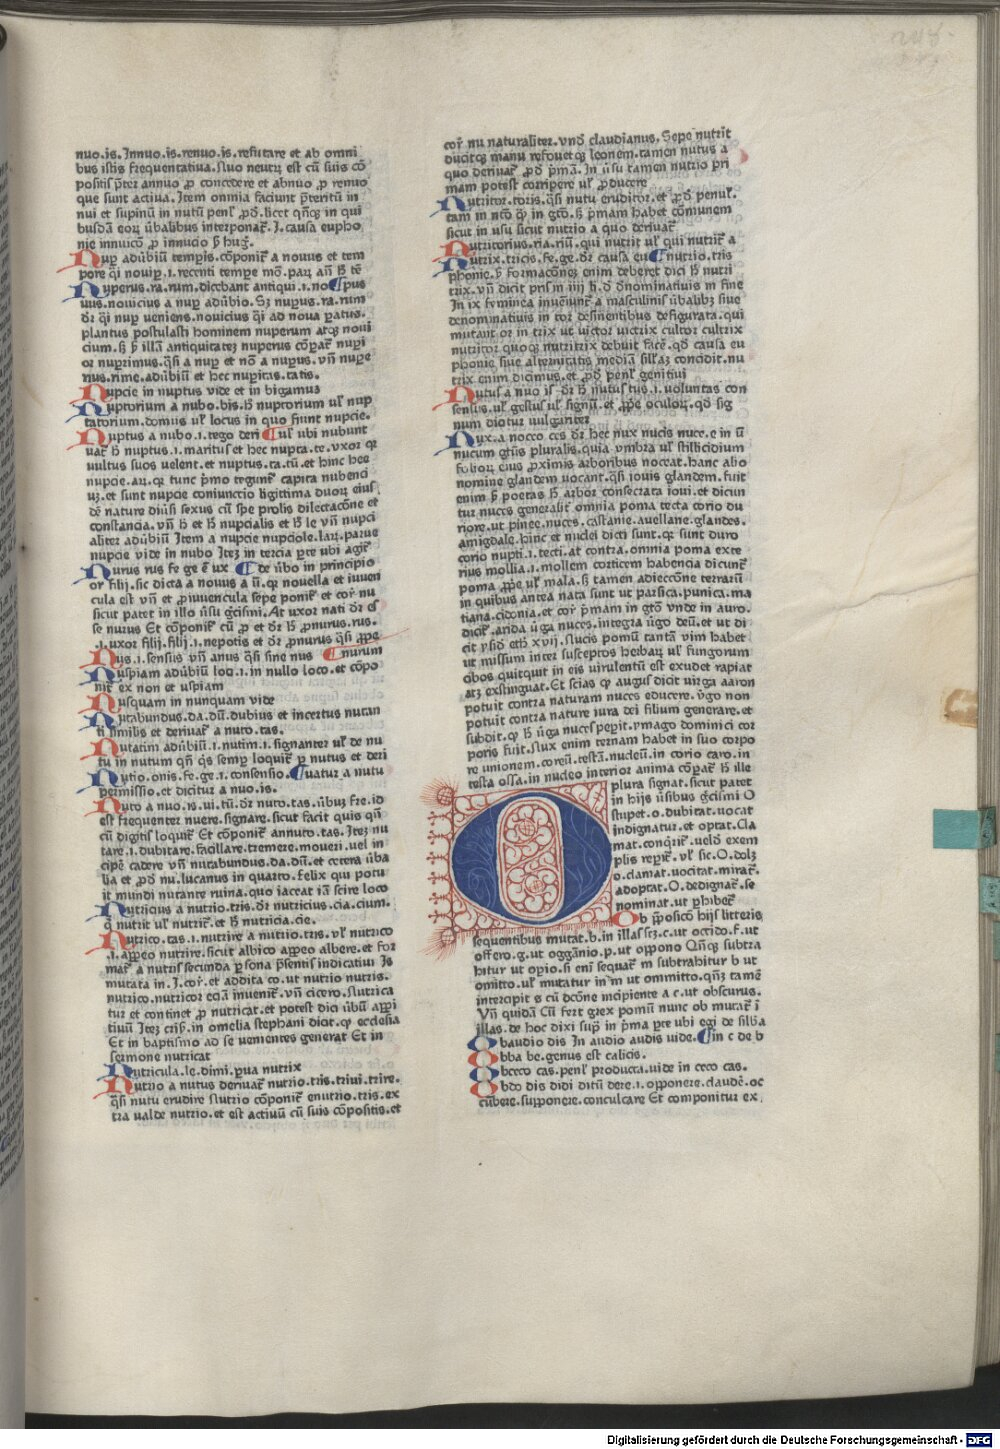 nuo.is. Innuo.is.renuo.is.refutare et ab omni
bus istis frequentatiua. Nuo neutrꝫ est cū suis cō
positis p̄ter annuo ꝓ concedere et abnuo ꝓ renuo
que sunt actiua. Item omnia faciunt p̄teritū in
nui et supinū in nutū penl' ꝓd̄. licet qn̄qꝫ in qui
busdā eoꝝ ūbalibus interponat᷑. I. causa eupho
nie innuico ꝓ innucio s̄ hug.
Nuꝑ adūbiū tempis. cōponit᷑ a nouus et tem
pore q̄i nouiꝑ .i. recenti tempe
Nuperus.ra.rum. dicebant antiqui .i. no ¶pus
uus. nouicius a nuꝑ adūbio. Sꝫ nuꝑus.ra.rum
dr̄ q̄i nuꝑ ueniens. nouicius q̄i ad noua ꝑatus.
plantus postulasti hominem nuperum atqꝫ noui
cium. sꝫ ꝑ illā antiquitatez nuperus cōꝑat᷑ nuꝑi
or nuꝑrimus. q̄si a nuꝑ et nō a nuꝑus. vn̄ nuꝑe
rus.rime. adūbiū et hec nuꝑitas.tatis.
Nupcie in nuptus vide et in bigamus
Nuptorium a nubo.bis. h̄ nuptorium ul' nup
tatorium. domus ul' locus in quo fiunt nupcie.
Nuptus a nubo .i. tego deri ¶ul' ubi nubunt
uat᷑ h̄ nuptus .i. maritus et hec nupta.te. vxor qꝛ
uultus suos uelent. et nuptus.ta.tū. et hinc hee
nupcie.aꝝ. qꝛ tunc p̄mo tegunt᷑ capita nubenci
uꝫ. et sunt nupcie coniunctio ligittima duoꝝ eius
dē nature diūsi sexus cū spe prolis dilectacōne et
constancia. vn̄ h̄ et h̄ nupcialis et h̄ le vn̄ nupci
aliter adūbiū Item a nupcie nupciole.laꝝ. parue
nupcie vide in nubo Itez in tercia ꝑte ubi agit᷑
Nurus rus fe ge ē ux ¶de ūbo in principio
or filij. sic dicta a nouus a ū. qꝛ nouella et iuuen
cula est vn̄ et ꝓiuuencula sepe ponit᷑ et cor̄ nu
sicut patet in illo ūsu gr̄cismi. At uxor nati dr̄ es
se nurus Et cōponit᷑ cū ꝓ et dr̄ h̄ ꝓnurus.rus.
.i. uxor filij. filij .i. nepotis et dr̄ ꝓnurus q̄si ꝓpe
Nus .i. sensus vn̄ anus q̄si sine nus ¶nurum
Nuspiam adūbiū loci .i. in nullo loco. et cōpo
nit᷑ ex non et uspiam
Nusquam in nunquam vide
Nutabundus.da.dū. dubius et incertus nutan
ti similis et deriuat᷑ a nuto.tas.
Nutatim adūbiū .i. nutim .i. signanter ul' de nu
tu in nutum qn̄ q̄s semꝑ loquit᷑ ꝑ nutus et deri
Nutio.onis.fe.ge .i. consensio. ¶uatur a nutu
permissio. et dicitur a nuo.is.
Nuto a nuo.is.ui.tū. dr̄ nuto.tas. ūbuꝫ fre. id
est frequenter nuere. signare. sicut facit quis qn̄
cū digitis loquit᷑ Et cōponit᷑ annuto.tas. Itez nu
tare .i. dubitare. facillare. tremere. moueri. uel in
cipe cadere vn̄ nutabundus.da.dū. et cetera ūba
lia et ꝓd̄ nu. lucanus in quarto. felix qui potu
it mundi nutante ruina. quo iaceat iā scire loco
Nutricius a nutrio.tris. dr̄ nutricius.cia.cium.
q̄ nutrit ul' nutrit᷑. et h̄ nutricia.cie.
Nutrico.tas .i. nutrire a nutrio.tris. ul' nutrico
.i. aꝓpeo nutrire. sicut albico aꝓpeo albere. et for
mat᷑ a nutris secunda ꝑsona p̄sentis indicatiui Is
mutata in .I. cor̄. et addita co. ut nutrio nutris.
nutrico. nutricor eciā inuenit᷑. vn̄ cicero. Nutrica
tur et continet ꝓ nutricat. et potest dici ūbū aꝓpi
tiuū Itez cris̄. in omelia stephani dicit. qꝙ ecclesia
Et in baptismo ad se uenientes generat Et in
sermone nutricat
Nutricula.le. dimi. ꝑua nutrix
Nutrio a nutus deriuat᷑ nutrio.tris.triui.trire.
q̄si nutu erudire Nutrio cōponit᷑ enutrio.tris. ex
tra ualde nutrio. et est actiuū cū suis cōpositis. et
cor̄ nu naturaliter. vnd̄ claudianus. Sepe nutrit
ducitqꝫ manu refouetqꝫ leonem. tamen nutus a
quo deriuat᷑ ꝓd̄ p̄mā. In ūsu tamen nutrio pri
mam potest corripere ul' ꝓducere
Nutritor.toris. q̄si nutu eruditor. et ꝓd̄ penul'.
tam in nt̄o qꝫ in gt̄o. sꝫ p̄mam habet cōmunem
sicut in usu sicut nutrio a quo deriuat᷑
Nutritorius.ria.riū. qui nutrit ul' qui nutrit᷑ a
Nutrix.tricis.fe.ge. dr̄ causa eu ¶nutrio.tris
phonie. s̄ formacōnez enim deberet dici h̄ nutri
trix. vn̄ dicit pris̄ in iiij h. d d̄nominatiuis in fine
In ix feminea inueniunt᷑ a masculinis ūbalibꝫ siue
denominatiuis in tor desinentibus defigurata. qui
mutant or in trix ut uictor uictrix cultor cultrix
nutritor quoqꝫ nutritrix debuit facē. qd̄ causa eu
phonie siue alternitatis mediā sill'aꝫ concidit. nu
trix enim dicimus. et ꝓd̄ penl' genitiui
Nutus a nuo is dr̄ h̄ nutus tus .i. uoluntas con
sensus. ul' gestus ul' signū. et ꝓpe oculoꝝ. qd̄ sig
num dicitur uulgariter
Nux. a noceo ces dr̄ hec nux nucis nuce. e in ū
nucum gt̄us pluralis. quia umbra ul' stillicidium
folioꝝ eius ꝓximis arboribus noceat. hanc alio
nomine glandem uocant. q̄si iouis glandem. fuit
enim s̄ poetas h̄ arbor consecrata ioui. et dicun
tur nuces generalit᷑ omnia poma tecta corio du
riore. ut pinee. nuces. castanie. auellane. glandes.
amigdale. hinc et nuclei dicti sunt. qꝛ sunt duro
corio nupti .i. tecti. at contra. omnia poma exte
rius mollia .i. mollem corticem habencia dicunt᷑
poma ꝓpe ul' mala. sꝫ tamen adieccōne terrarū
in quibus antea nata sunt ut parsica. punica. ma
tiana. cidonia. et cor̄ p̄mam in gt̄o vnde in auro.
dicit᷑. arida ūga nuces. integra ūgo deū. et ut di
cit ysid̄ eth̄ xvij. Nucis pomū tantā vim habet
ut missum inter susceptos herbaꝝ ul' fungorum
cibos quitquit in eis uirulentū est exudet rapiat
atꝫ exstinguat. Et scias qꝙ augus̄ dicit uirga aaron
potuit contra naturam nuces educere. ūgo non
potuit contra nature iura dei filium generare. et
subdit. qꝙ h̄ ūga nuces peꝑit. ymago dominici cor
poris fuit. Nux enim ternam habet in suo corpo
re unionem. coreū. testā. nucleū. in corio caro. in
testa ossa. in nucleo interior anima cōꝑat᷑ h̄ ille
O
plura signat. sicut patet
in hijs ūsibus gr̄cismi O
stupet. o. dubitat. uocat
indignatur. et optat. Cla
mat. conqrit᷑. uelō exem
plis reꝑit᷑. ul' sic. O. dolꝫ
o. clamat. uocitat. mirat᷑.
adoptat. O. dedignat᷑. se
nominat. ut ꝓhibet᷑
Ob p̄posicō hijs litteris
sequentibus mutat. b. in illas sꝫ. c. ut occido. f. ut
offero. g. ut oggānio. p. ut oppono Qn̄qꝫ subtra
hitur ut oꝑio. si eni sequat᷑ m subtrahitur b ut
omitto. ul' mutatur in m ut ommitto. qn̄ꝫ tamē
intercipit s cū dcōne incipiente a c. ut obscurus.
Vn̄ quidā Cū fert grex pomū nunc ob mutat᷑ i
illas. de hoc dixi suꝑ in p̄ma ꝑte ubi egi de sill'a
Obaudio dis In audio audis vide. ¶in c de b
Obba be. genus est calicis.
Obceco cas. penl' producta. uide in ceco cas.
Obdo dis didi ditū dere .i. opponere. claudē. oc
cūbere. supponere. conculcare Et componitur ex
Digitalisierung gefördert durch die Deutsche Forschungsgemeinschaft - DFG